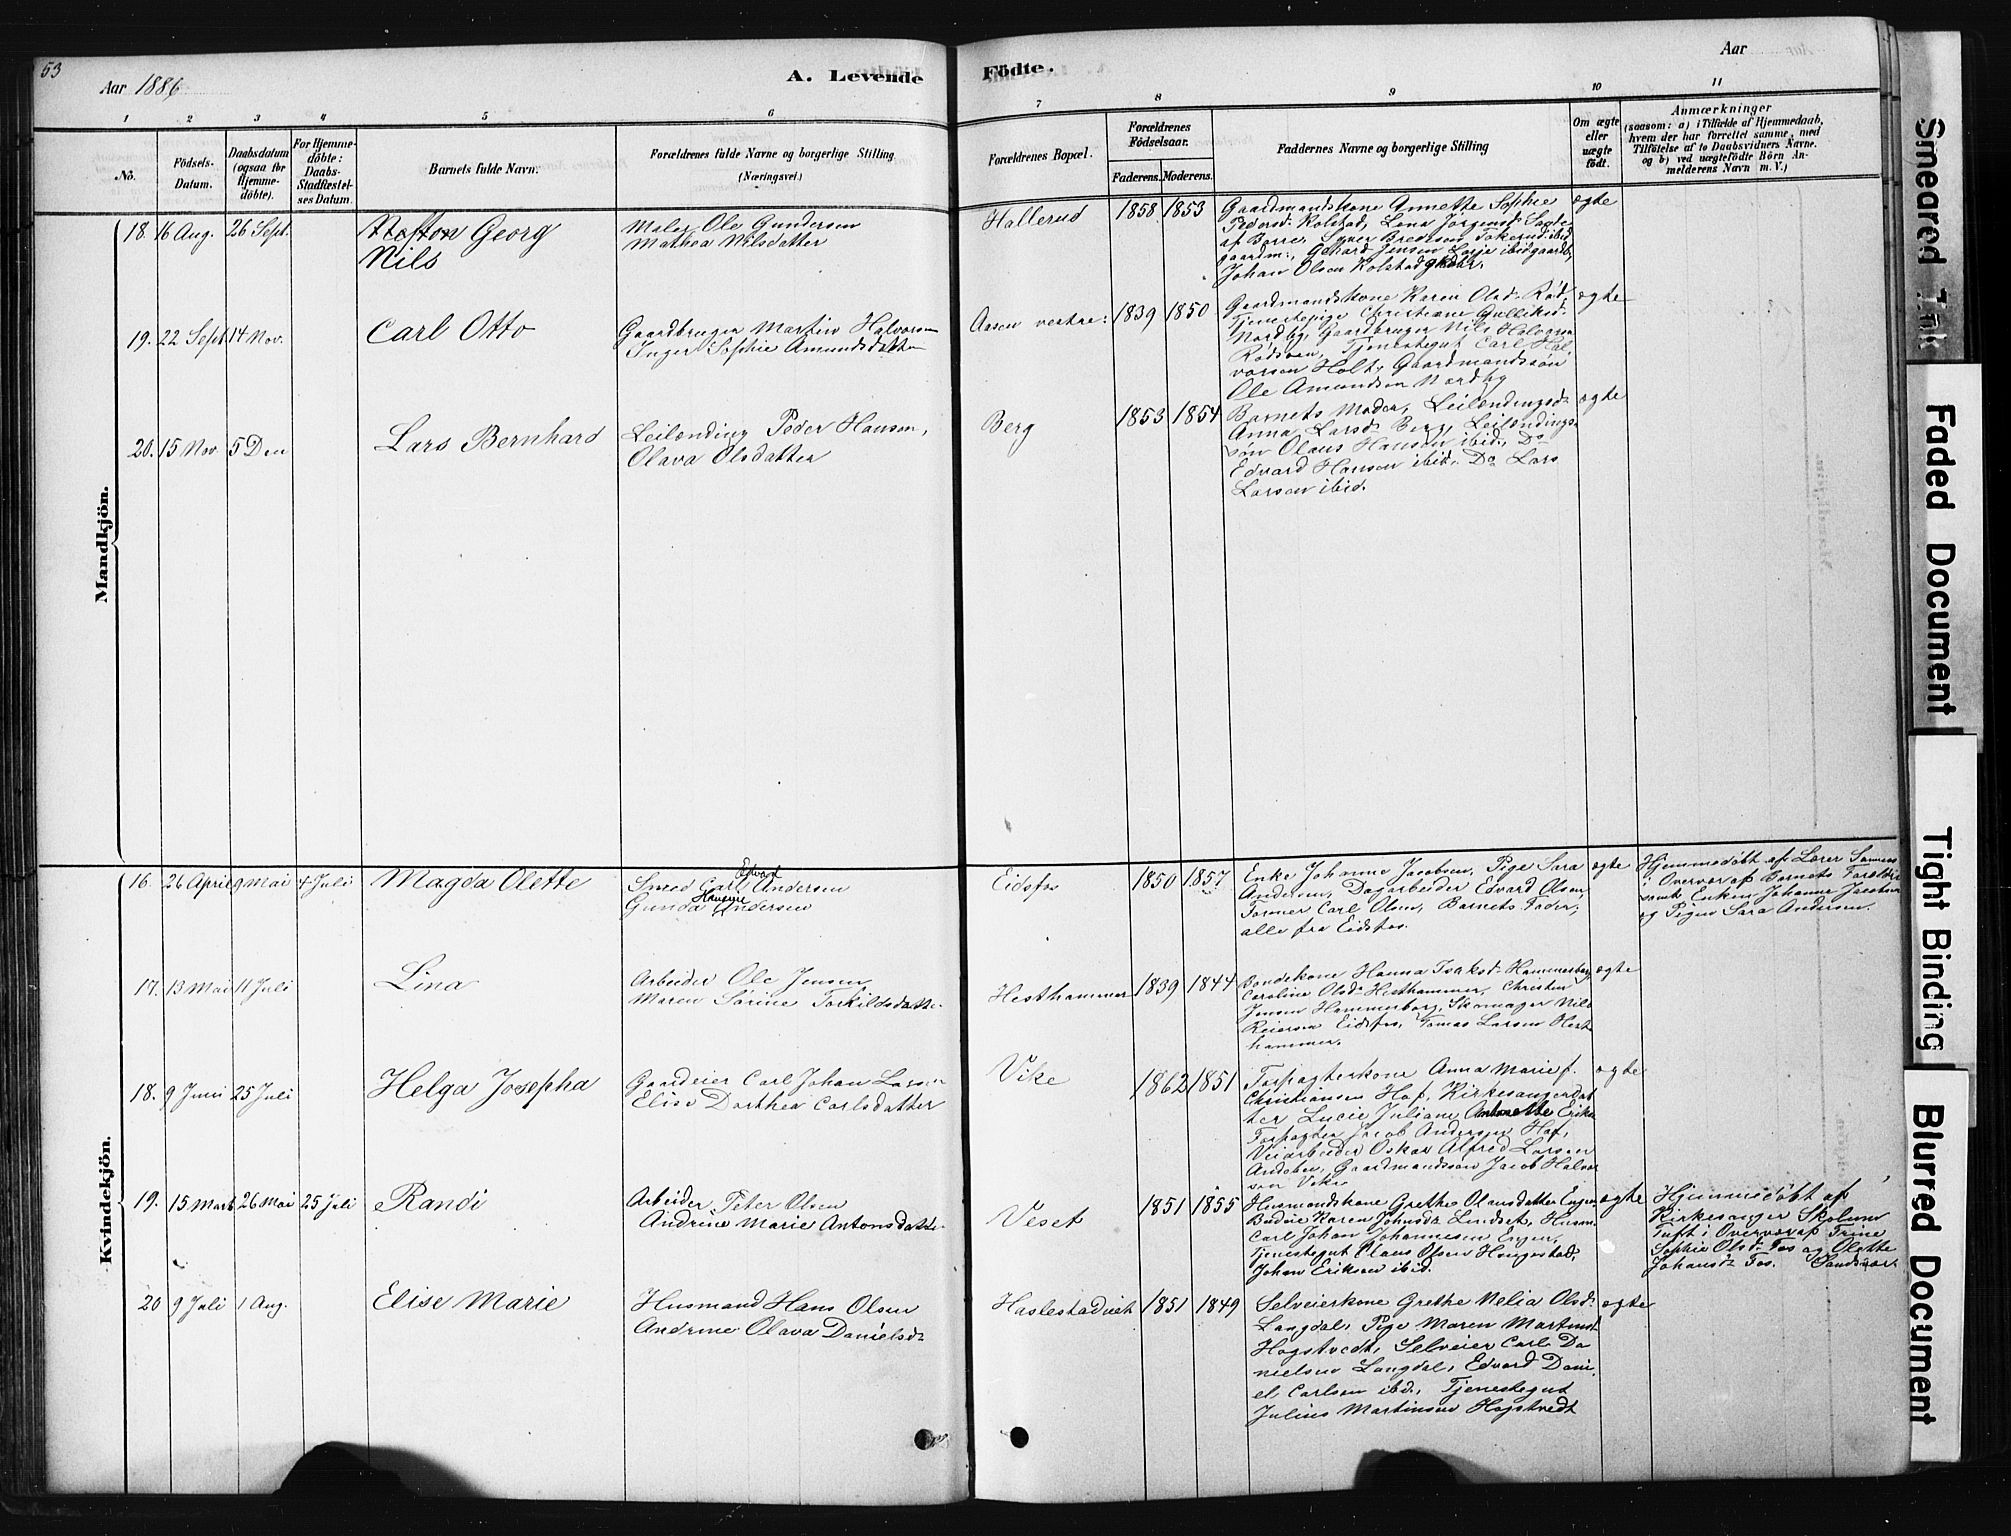 53
Aar 1886
A. Levende
Födte.
Aar
1 2 3 4 5 6 7 8 9 10 11
No.
Födsels-
Datum.
Daabsdatum
(ogsaa for
Hjemme-
döbte).
For Hjemme-
döbte:
Daabs-
Stadfæstel-
ses Datum.
Barnets fulde Navn.
Forældrenes fulde Navne og borgerlige Stilling
(Næringsvei.)
Forældrenes Bopæl.
Forældrenes
Födselsaar.
Faderens. Moderens.
Faddernes Navne og borgerlige Stilling
Om ægte
eller
uægte
födt.
Anmærkninger
(saasom: a) i Tilfælde af Hjemmedaab,
hvem der har forrettet samme, med
Tilföielse af to Daabsvidners Navne.
og b) ved uægtefödte Börn An-
melderens Navn m. V.)
Mandkjön.
18. 16 Aug. 26 Sept.
Georg
Nils
Maler Ole Gundersen
Mathea Nilsdatter
Hallerud
1858 1853
Gaardmandskone Annette Sophie
Pedersd: Kolstad, Lena Jørgensd:
af Borre,
Johan Olsen Kolstad
ægte
19. 22 Sept. 14 Nov.
Carl Otto
Gaardbruger Martin Halvorsen
Inger Sophie Amundsdatter
Aasen vestre:
1839 1850
Gaardmandskone Karen Olsd: Rød,
Tjenestepige Christiane Gulliksd:
Nordby, Gaardbruger Nils Halvorsen
Rødsven, Tjenestegut Carl Hal-
vorsen Holt, Gaardmandssøn
Ole Amundsen Nordby
ægte
20. 15 Nov 5 Den
Lars Bernhard
Leilænding Peder Hansen,
Olava Olsdatter
Berg
1853 1854
Barnets Moder, Leilændingsd:
Anna Larsd: Berg, Leilændings-
søn Olaus Hansen ibid, Do
Edvard Hansen ibid. Do Lars
Larsen ibid.
ægte
Kvindekjön.
16. 26 April 9 Mai 4 Juli
Magda Olette
Edvard
Smed Carl Andersen
Hansine
Gunda Andersen
Eidsfos
1850 1857
Enke Johanne Jacobsen, Pige Sara
Andersen, Dagarbeider Edvard Olsen,
Former Carl Olsen, Barnets Fader,
alle fra Eidsfos.
ægte
Hjemmedøbt af Lærer
i Overvær af Barnets Forældre
samt Enken Johanne Jacobsen
og Pigen Sara Andersen.
17. 13 Mai 11 Juli
Lina
Arbeider Ole Jensen
Maren Sørine Torkildsdatter
Hesthammer
1839 1844
Bondekone Hanna Isaksd: Hammerborg
Caroline Olsd: Hesthammer, Christen
Jensen Hammerborg, Skomager Nils
Reiersen Eidsfos, Tomas Larsen Hest-
hammer.
ægte
18. 9 Juni 25 Juli
Helga Josepha
Gaardeier Carl Johan Larsen
Elise Dorthea Carlsdatter
Vike
1862 1851
Forpagterkone Anna Marie f.
Christiansen Hof, Kirkesangerdat-
ter Lucie Juliane Antonette
Forpagter Jacob Andersen Hof,
Veiarbeider Oskar Alfred Larsen
Andeben, Gaardmandssøn Jacob Halvor
sen Vike
ægte
19. 15 Marts 26 Mai 25 Juli
Randi
Arbeider Peter Olsen
Andrine Marie Antonsdatter
Veset
1851 1855
Husmandskone Grethe Olausdatter Engen
Budeie Karen Johnsd: Lindset, Husm.
Carl Johan Johannesen Engen,
Tjenestegut Claus Olsen Hougestad,
Johan Eriksen ibid.
ægte
Hjemmedøbt af
Kirkesanger
Tuft i Overvær af Trine
Sophie Olsd: Fos og Olette
Johansd: Fos.
20 9 Juli 1 Aug.
Elise Marie
Husmand Hans Olsen
Andrine Olava Danielsd:
Haslestadeiet
1851 1849
Selveierkone Grethe Melia Olsd:
Langdal, Pige Maren Martinsd:
Hogstvedt, Selveier Carl Da
nielsen Langdal, Edvard Dani-
el Carlsen ibd., Tjenestegut
Julius Martinsen Hogstvedt
ægte
Smeared Ink
Faded Document
Tight Binding
Blurred Document